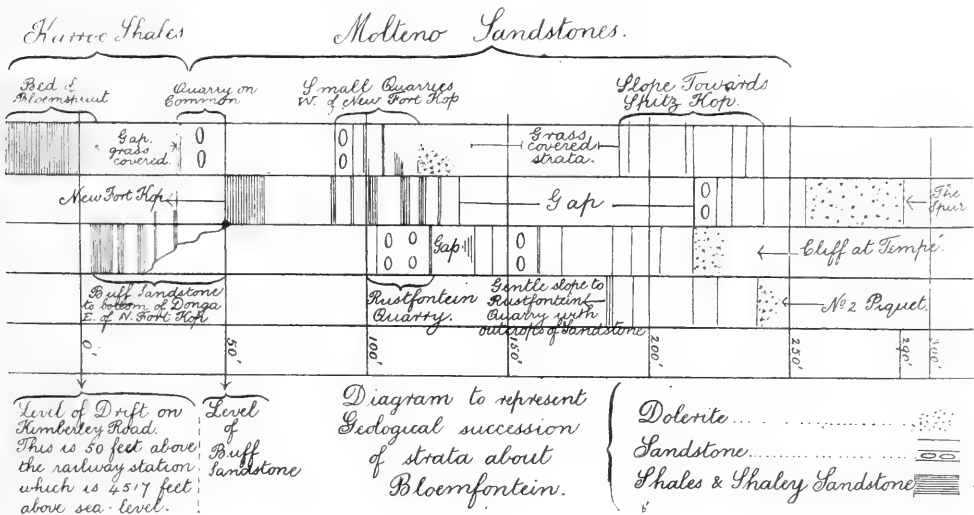 Karroo Shales
Molteno Sandstones.
Bed of
Bloemspruit
Quarry on
Common
Small Quarries
W. of New Fort Kop
Slope Towards
Spitz Kop.
Gap.
grass
covered.
Grass
covered
strata.
New Fort Kop
Gap
The
Spur
Gap
Cliff at Tempé.
Buff Sandstone
to bottom of Donga
E. of N. Fort Kop
Rustfontein
Quarry.
Gentle slope to
Rustfontein
Quarry with
outcrops of Sandstone
No 2 Piquet.
0'
50'
100'
150'
200'
250'
290'
300'
Level of Drift on
Kimberley Road.
This is 50 feet above
the railway station
which is 4517 feet
above sea-level.
Level
of
Buff
Sandstone
Diagram to represent
Geological succession
of strata about
Bloemfontein.
Dolerite
Sandstone
Shales & Shaley Sandstone